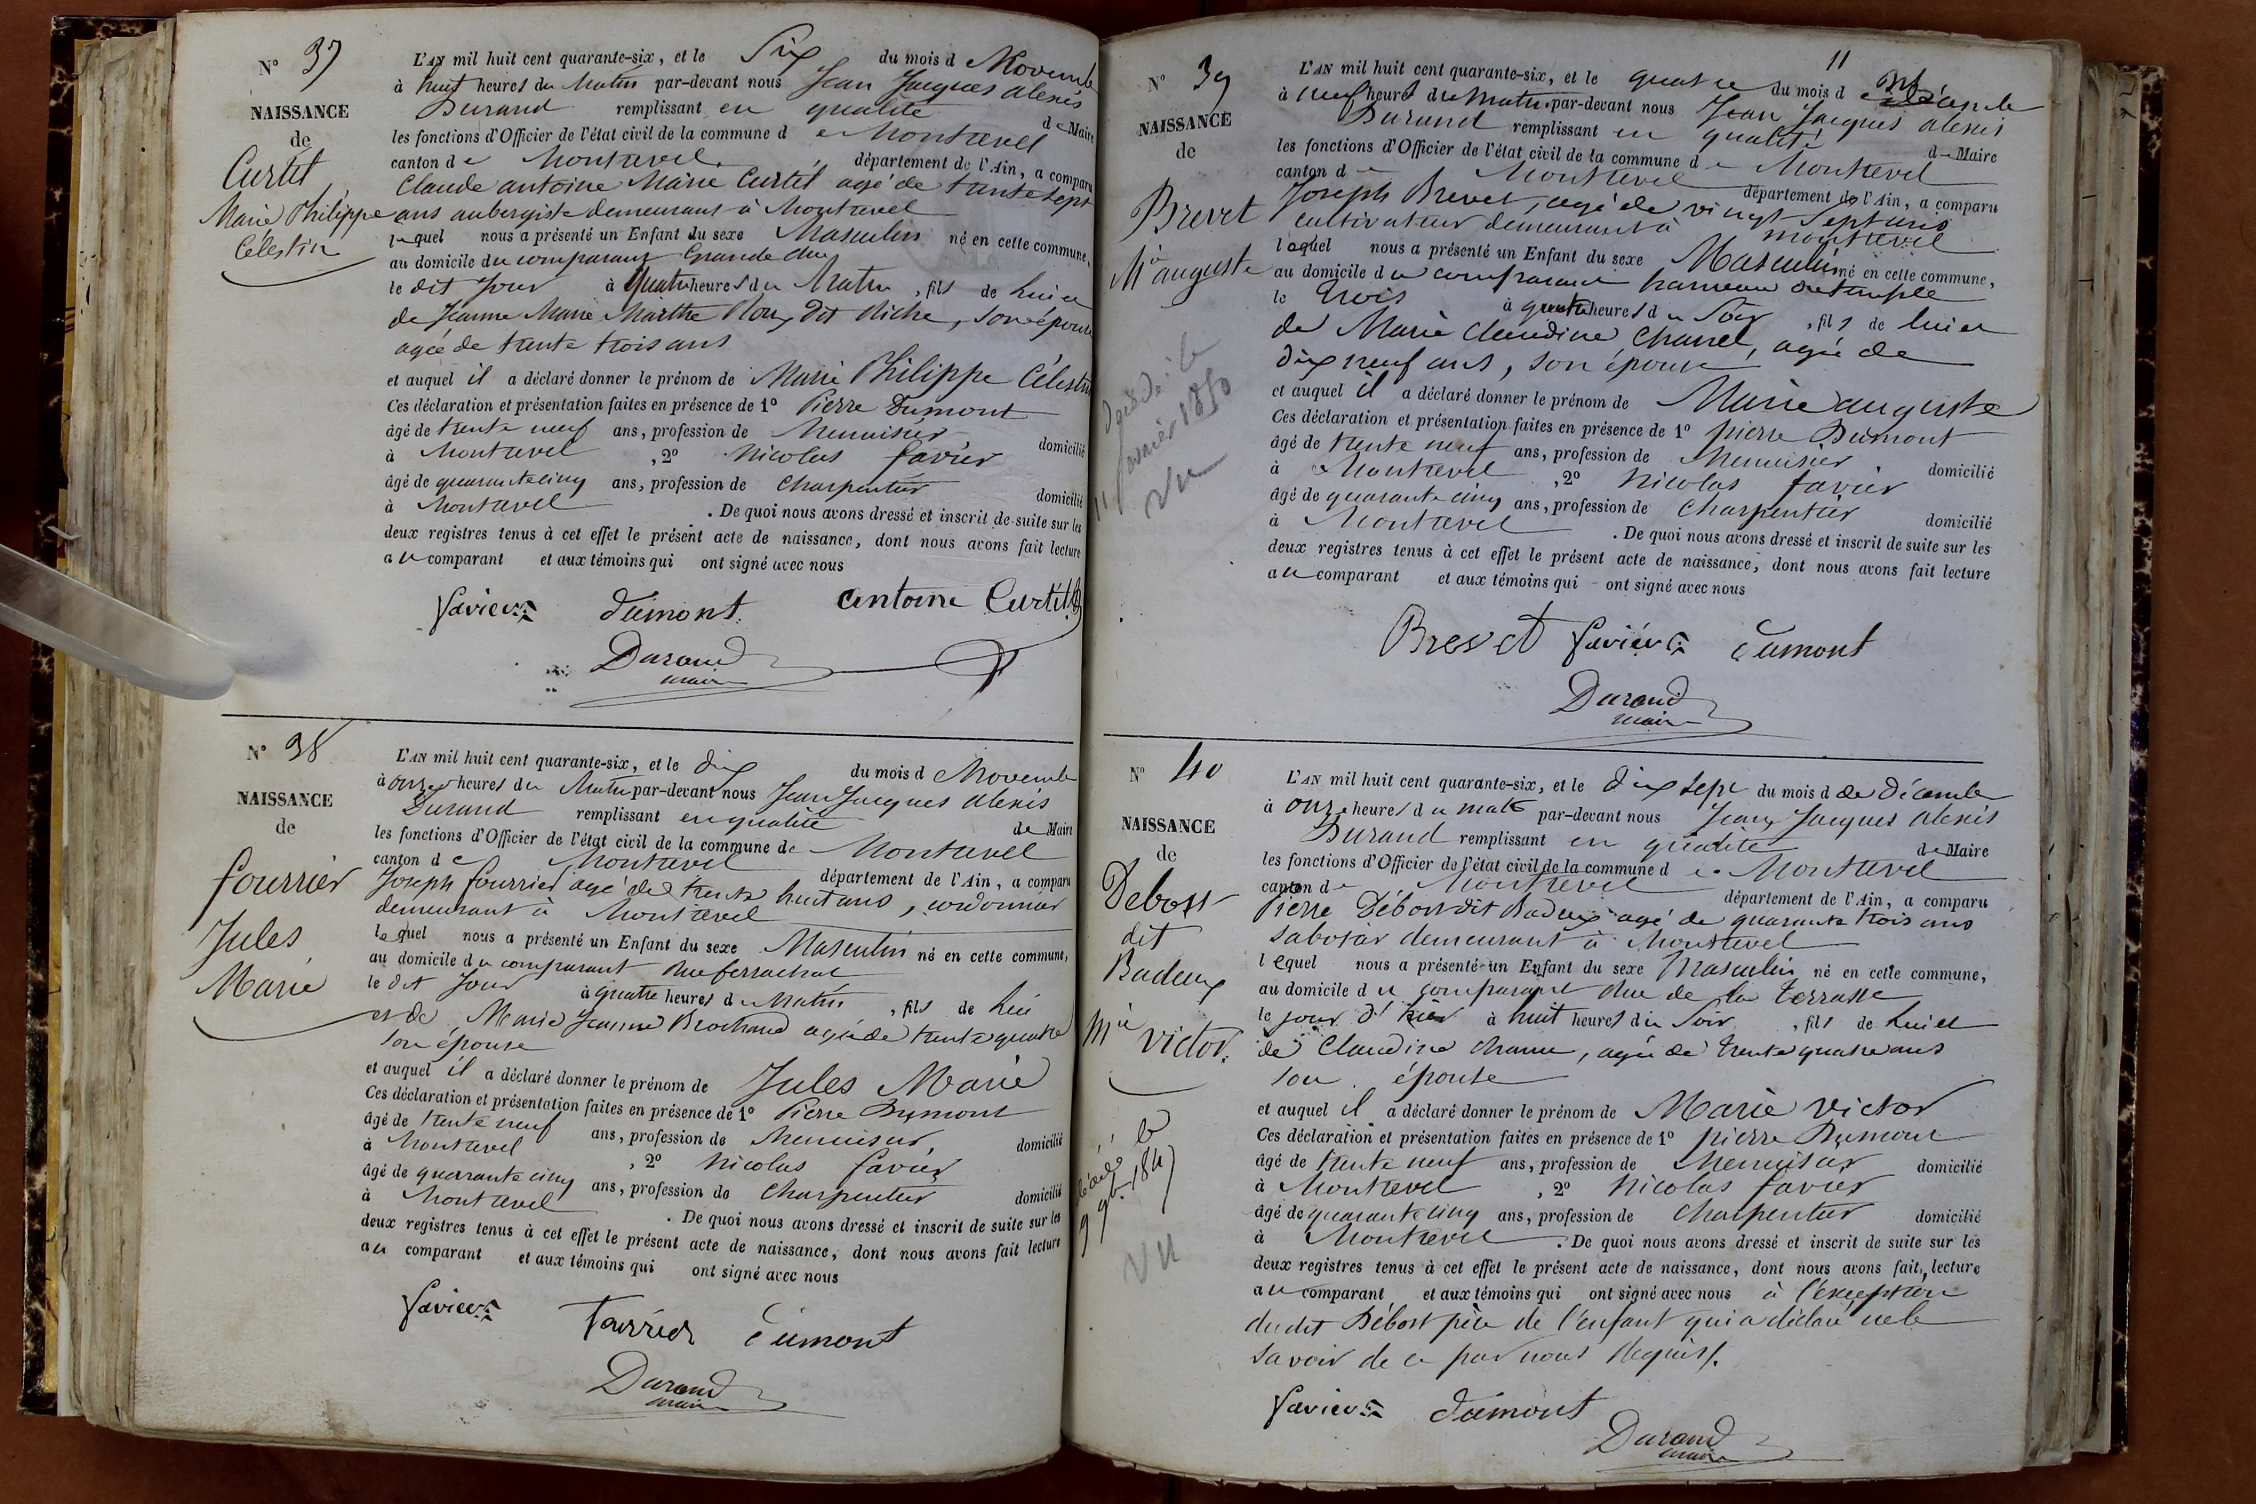 N° 37
NAISSANCE
de
Curtil
Marie Philippe
Célestin
L'AN mil huit cent quarante-six, et le Six du mois d e Novembre
à huit heures du Matin par-devant nous Jean Jacques alexis
Durand remplissant en qualité de Maire
les fonctions d'Officier de l'état civil de la commune d e Montrevel
canton d e Montrevel département de l'Ain, a comparu
Claude antoine Marie Curtil agé de trente sept
ans aubergiste demeurant à Montrevel
lequel nous a présenté un Enfant du sexe Masculin né en cette commune,
au domicile du comparant Grande rue
le dit Jour à quatre heures du Matin, fils de lui et
de Jeanne Marie Marthe dit Riche, son épouse
agée de trente trois ans
et auquel il a déclaré donner le prénom de Marie Philippe Célestin
Ces déclaration et présentation faites en présence de 1° Pierre Dumont
âgé de trente neuf ans, profession de Menuisier domicilié
à Montrevel, 2° Nicolas favier
âgé de quarante cinq ans, profession de Charpentier domicilié
à Montrevel. De quoi nous avons dressé et inscrit de suite sur les
deux registres tenus à cet effet le présent acte de naissance, dont nous avons fait lecture
au comparant et aux témoins qui ont signé avec nous
favier dumont antoine Curtil
Durand
maire
N° 38
NAISSANCE
de
fourrier
Jules
Marie
L'AN mil huit cent quarante-six, et le dix du mois d e Novembre
à onze heures du Matin par-devant nous Jean Jacques alexis
Durand remplissant en qualité de Maire
les fonctions d'Officier de l'état civil de la commune de Montrevel
canton d e Montrevel département de l'Ain, a comparu
Joseph fourrier agé de trente huit ans, cordonnier
demeurant à Montrevel
lequel nous a présenté un Enfant du sexe Masculin né en cette commune,
au domicile du comparant Rue ferrachat
le dit Jour à quatre heures du Matin, fils de lui
et de Marie Jeanne Brochand agée de trente quatre
son épouse
et auquel il a déclaré donner le prénom de Jules Marie
Ces déclaration et présentation faites en présence de 1° Pierre Dumont
âgé de trente neuf ans, profession de Menuisier domicilié
à Montrevel, 2° Nicolas favier
âgé de quarante cinq ans, profession de Charpentier domicilié
à Montrevel. De quoi nous avons dressé et inscrit de suite sur les
deux registres tenus à cet effet le présent acte de naissance, dont nous avons fait lecture
au comparant et aux témoins qui ont signé avec nous
favier fourrier dumont
Durand
maire
11
N° 39
NAISSANCE
de
Brevet
Mie auguste
Décédé le
11 janvier 1850
Vu
L'AN mil huit cent quarante-six, et le quatre du mois d e Décembre
à neuf heures du Matin par-devant nous Jean Jacques alexis
Durand remplissant en qualité de Maire
les fonctions d'Officier de l'état civil de la commune d e Montrevel
canton d e Montrevel département de l'Ain, a comparu
Joseph Brevet, agé de vingt sept ans
cultivateur demeurant à Montrevel
lequel nous a présenté un Enfant du sexe Masculin né en cette commune,
au domicile du comparant hameau du temple
le trois à quatre heures du Soir, fils de lui et
de Marie Claudine Chanel, agée de
dix neuf ans, son épouse
et auquel il a déclaré donner le prénom de Marie auguste
Ces déclaration et présentation faites en présence de 1° pierre Dumont
âgé de trente neuf ans, profession de Menuisier domicilié
à Montrevel, 2° Nicolas favier
âgé de quarante cinq ans, profession de Charpentier domicilié
à Montrevel. De quoi nous avons dressé et inscrit de suite sur les
deux registres tenus à cet effet le présent acte de naissance, dont nous avons fait lecture
au comparant et aux témoins qui ont signé avec nous
Brevet favier dumont
Durand
maire
N° 40
NAISSANCE
de
Debost
dit
Badeux
Mie
victor.
Décédé le
9 9bre 1847
Vu
L'AN mil huit cent quarante-six, et le dix sept du mois d de décembre
à onze heures du mat par-devant nous Jean Jacques alexis
Durand remplissant en qualité de Maire
les fonctions d'Officier de l'état civil de la commune d e Montrevel
canton d e Montrevel département de l'Ain, a comparu
Pierre Débost dit Badeux agé de quarante trois ans
sabotier demeurant à Montrevel
lequel nous a présenté un Enfant du sexe Masculin né en cette commune,
au domicile du comparant Rue de la terrasse
le jour d'hier à huit heures du Soir, fils de lui et
de Claudine Chanu, agée de trente quatre ans
son épouse
et auquel il a déclaré donner le prénom de Marie victor
Ces déclaration et présentation faites en présence de 1° pierre Dumont
âgé de trente neuf ans, profession de Menuisier domicilié
à Montrevel, 2° Nicolas favier
âgé de quarante cinq ans, profession de Charpentier domicilié
à Montrevel. De quoi nous avons dressé et inscrit de suite sur les
deux registres tenus à cet effet le présent acte de naissance, dont nous avons fait lecture
au comparant et aux témoins qui ont signé avec nous à l'exception
du dit Débost père de l'enfant qui a déclaré ne le
savoir de ce par nous Requis.
favier dumont
Durand
maire